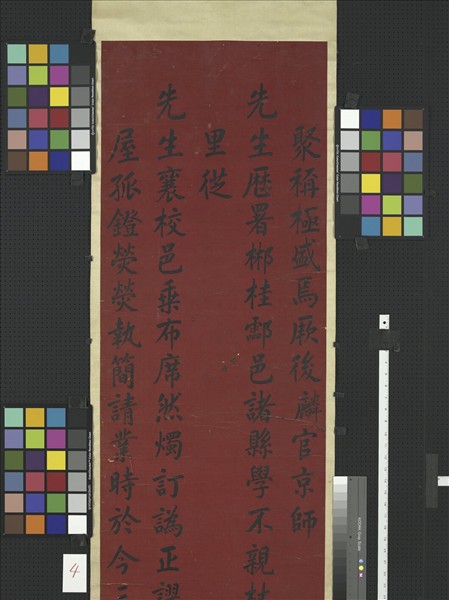 聚稱極盛焉厥後麟官京師
先生歷署郴桂酃邑諸縣學不親杖
里從
先生襄校邑乘布席然燭訂譌正謬
屋孤鐙熒熒執簡請業時於今三
4